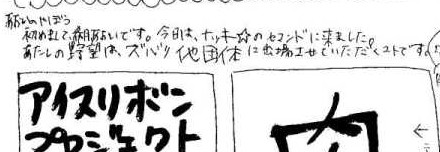 初めまして、です。今日は、ナッキー☆のセコンドに来ました。
あたしの野望は、ズバリ他団体に出場させていただくコトです。
アイスリボン
プロジェクト